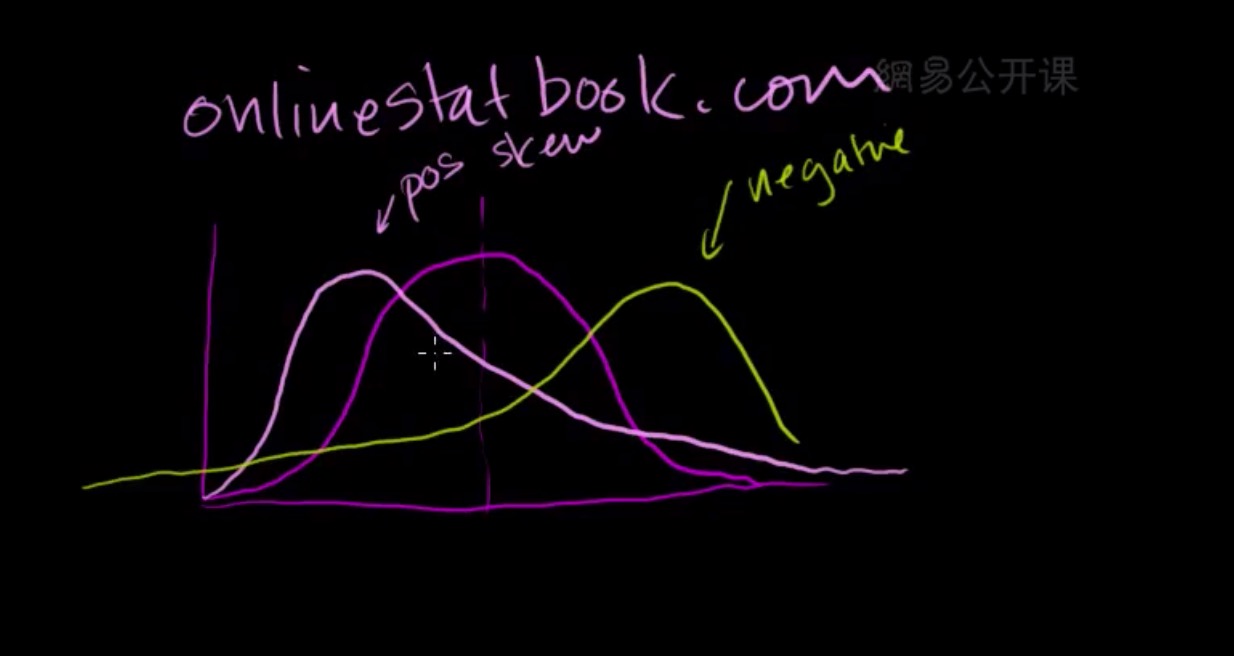 onlinestatbook.com
網易公开课
pos skew
negative